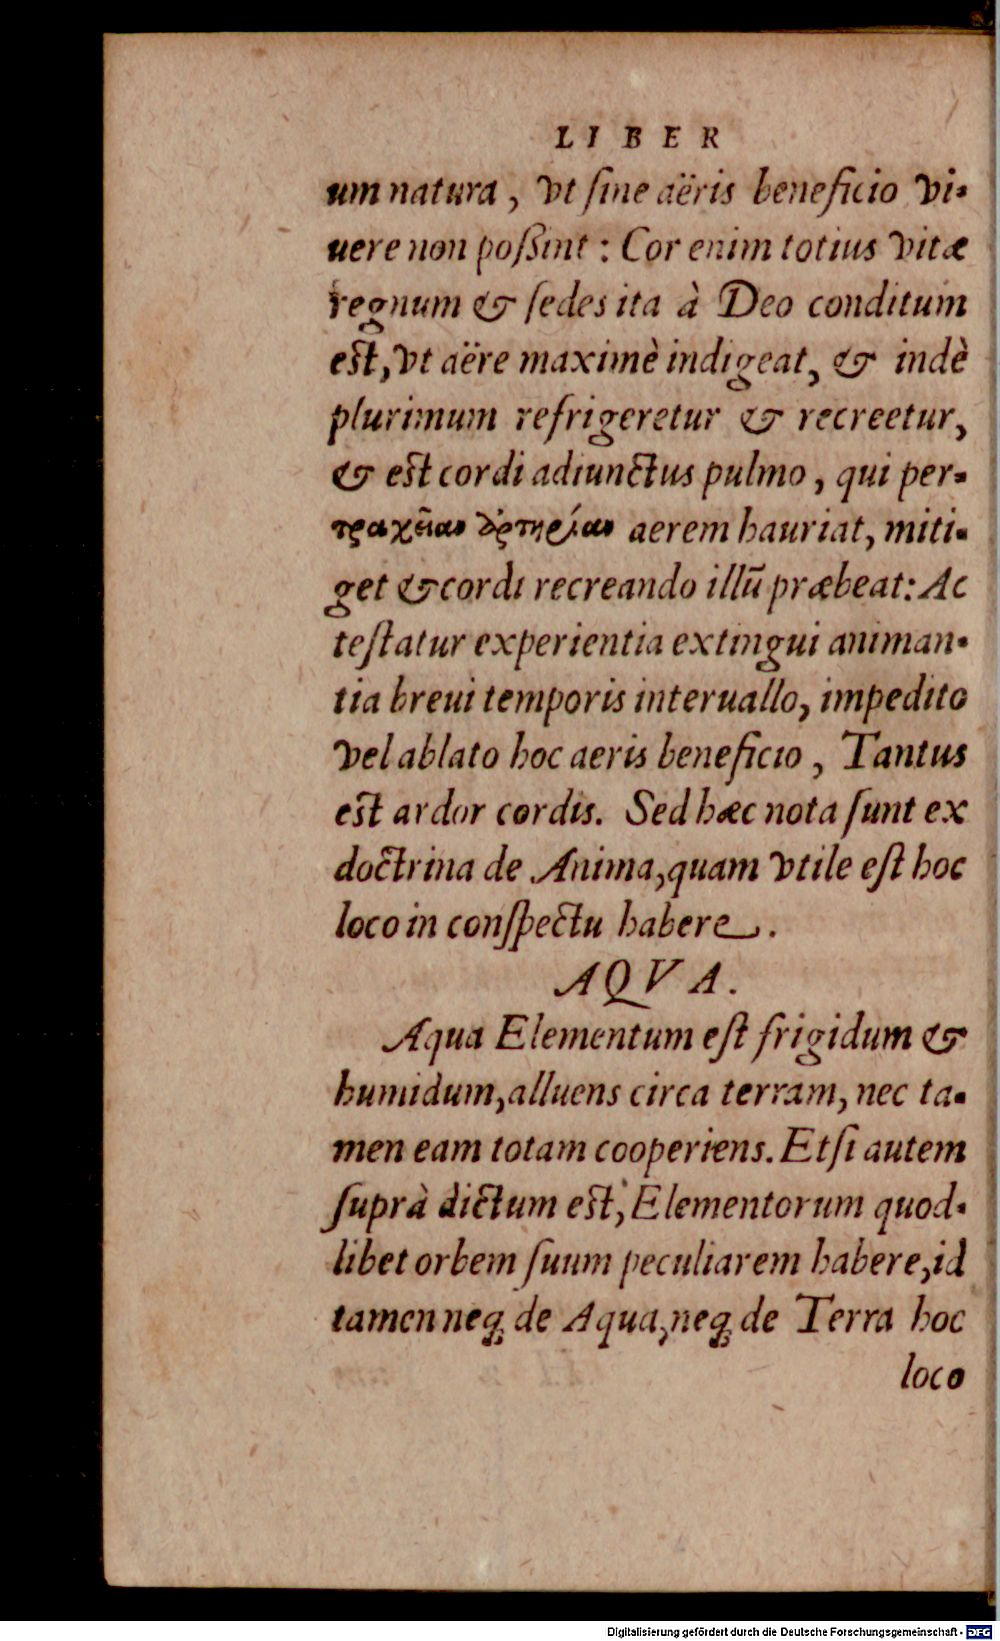 LIBER
um natura, vt ſine aëris beneficio vi-
uere non poßint: Cor enim totius vitæ
regnum & ſedes ita à Deo conditum
eſt, vt aëre maximè indigeat, & indè
plurimum refrigeretur & recreetur,
& eſt cordi adiunctus pulmo, qui per-
τραχεῖαν ἀρτηρίαν aerem hauriat, miti-
get & cordi recreando illū præbeat: Ac
teſtatur experientia extingui animan-
tia breui temporis interuallo, impedito
vel ablato hoc aeris beneficio, Tantus
eſt ardor cordis. Sed hæc nota ſunt ex
doctrina de Anima, quam vtile eſt hoc
loco in conſpectu habere.
AQVA.
Aqua Elementum eſt frigidum &
humidum, alluens circa terram, nec ta-
men eam totam cooperiens. Etſi autem
ſuprà dictum eſt, Elementorum quod-
libet orbem ſuum peculiarem habere, id
tamen neq; de Aqua, neq; de Terra hoc
loco
Digitalisierung gefördert durch die Deutsche Forschungsgemeinschaft - DFG